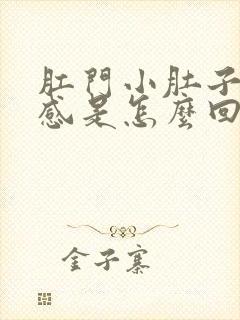 肛門小肚子
感是怎麼回
金子寨